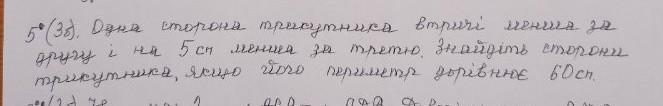 5°(3б). Одна сторона трикутника втричі менша за
другу і на 5 см менша за третю. Знайдіть сторони
трикутника, якщо його периметр дорівнює 60 см.